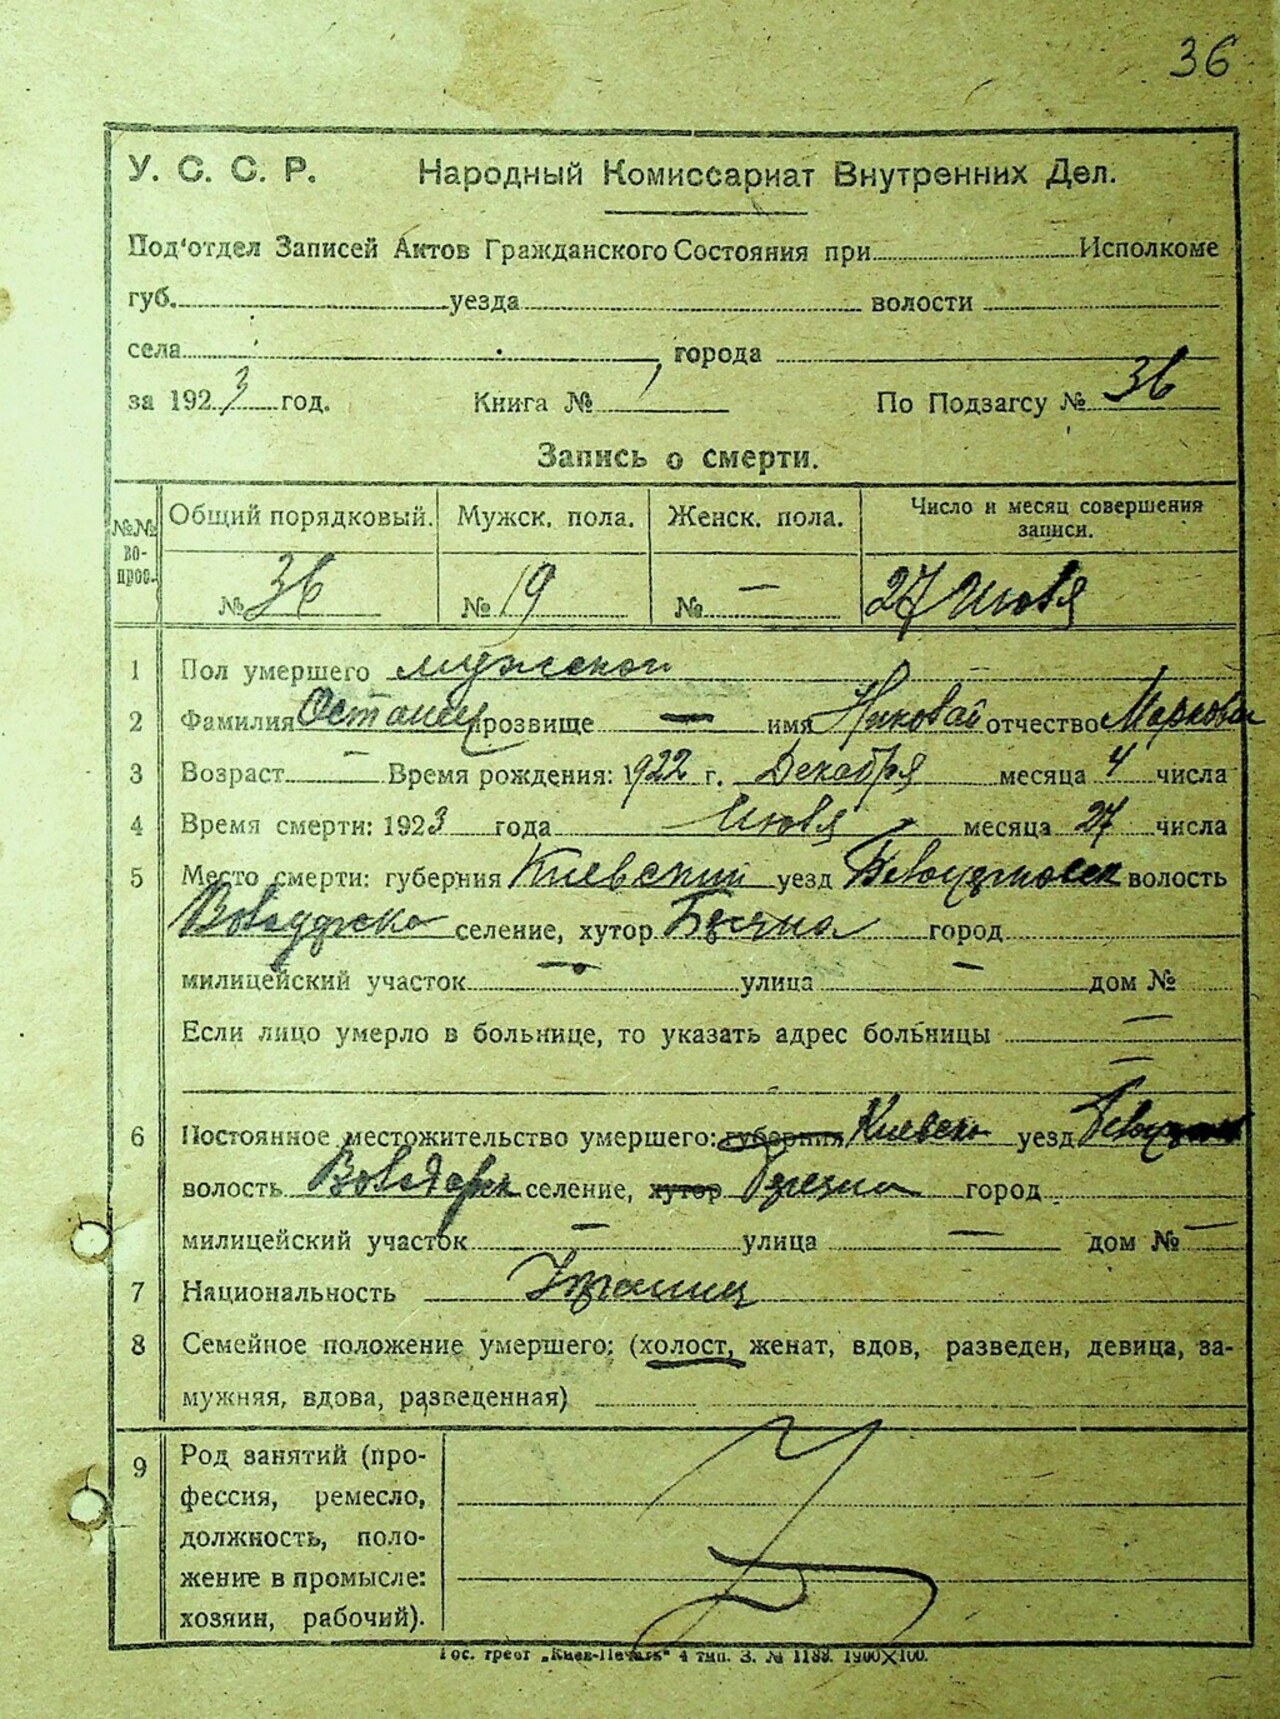 36
У. С. С. Р. Народный Комиссариат Внутренних Дел.
Под'отдел Записей Актов Гражданского Состояния при Исполкоме
губ. уезда волости
села , города
за 1923 год. Книга № 1 По Подзагсу № 36
Запись о смерти.
№№ вопрос. Общий порядковый. Мужск. пола. Женск. пола. Число и месяц совершения записи.
№ 36 № 19 № — 27 Июля
1 Пол умершего мужской
2 Фамилия Остапец прозвище — имя Николай отчество Маркович
3 Возраст — Время рождения: 1922 г. Декабря месяца 4 числа
4 Время смерти: 1923 года Июля месяца 27 числа
5 Место смерти: губерния Киевский уезд волость
селение, хутор город
милицейский участок — улица — дом №
Если лицо умерло в больнице, то указать адрес больницы —
—
6 Постоянное местожительство умершего: губерния Киевско уезд
волость селение, хутор город
милицейский участок — улица — дом № —
7 Национальность
8 Семейное положение умершего: (холост, женат, вдов, разведен, девица, за-
мужняя, вдова, разведенная)
9 Род занятий (про-
фессия, ремесло,
должность, поло-
жение в промысле:
хозяин, рабочий).
Гос. трест „Киев-Печать" 4 тип. З. № 1188. 1900×100.